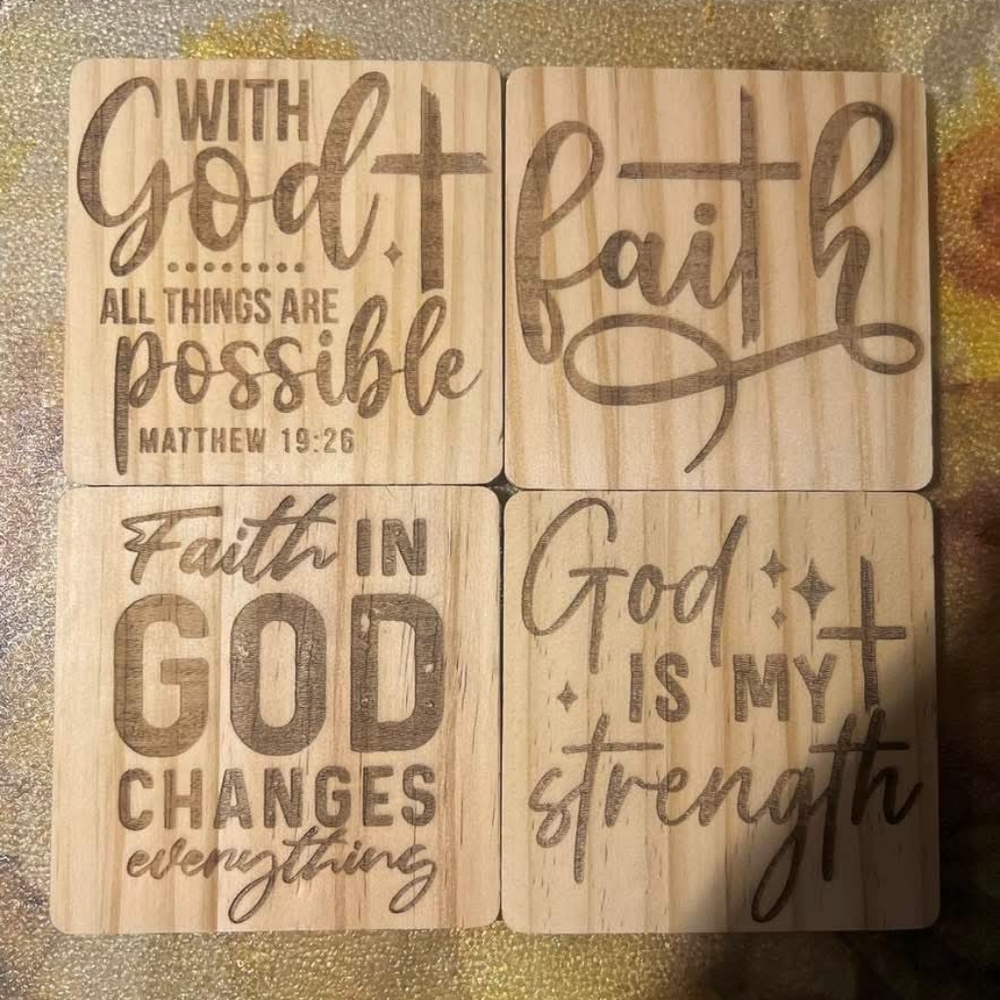 WITH
God
ALL THINGS ARE
possible
MATTHEW 19:26
faith
Faith IN
GOD
CHANGES
everything
God
IS MY
strength